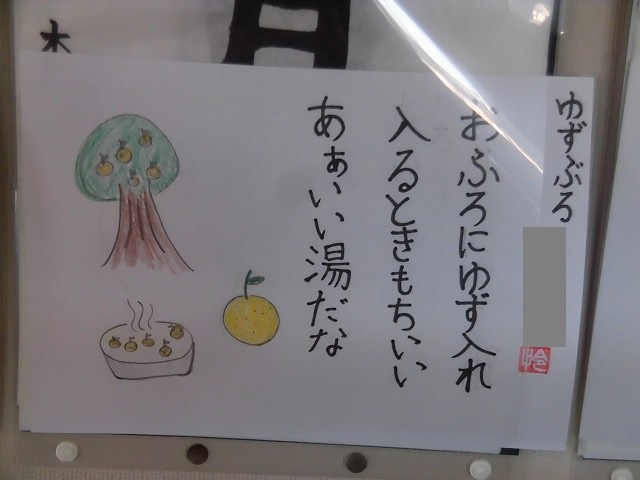 ゆずぶろ
おふろにゆず入れ
入るときもちいい
あぁいい湯だな
木
月